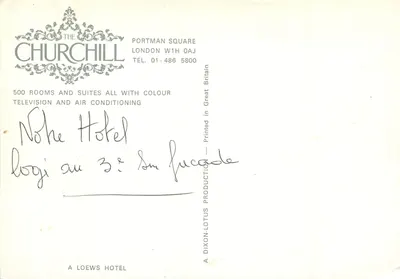 THE
CHURCHILL
PORTMAN SQUARE
LONDON W1H 0AJ
TEL. 01-486 5800
500 ROOMS AND SUITES ALL WITH COLOUR
TELEVISION AND AIR CONDITIONING
Notre Hotel
logi au 3.e sur facade
A LOEWS HOTEL
A DIXON-LOTUS PRODUCTION — Printed in Great Britain